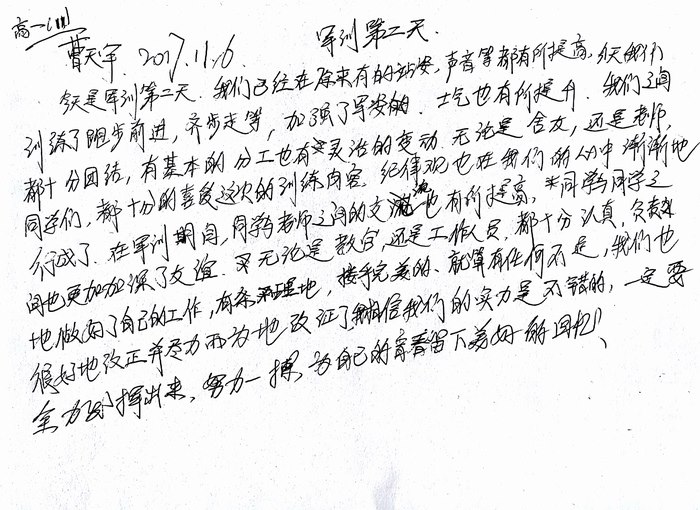 高一(11)
曹天宇 2017.11.6 军训第二天.
今天是军训第二天. 我们已经在原来有的站姿,声音等都有所提高,今天我们
训练了跑步前进,齐步走等,加强了军姿的. 士气也有所提升. 我们之间
都十分团结,有基本的分工也有灵活的变动. 无论是舍友,还是老师,
同学们,都十分的喜爱这次的训练内容. 纪律观也在我们的心中渐渐地
形成了. 在军训期间,同学与老师之间的交流也有所提高,同学与同学之
间也更加加深了友谊. 无论是教官,还是工作人员,都十分认真,负责
地做好了自己的工作,有条理地,接近完美的. 就算有任何不足,我们也
很好地改正并尽力而为地改正了 我相信我们的实力是不错的,一定要
全力发挥出来,努力一搏,为自己的青春留下美好的回忆!